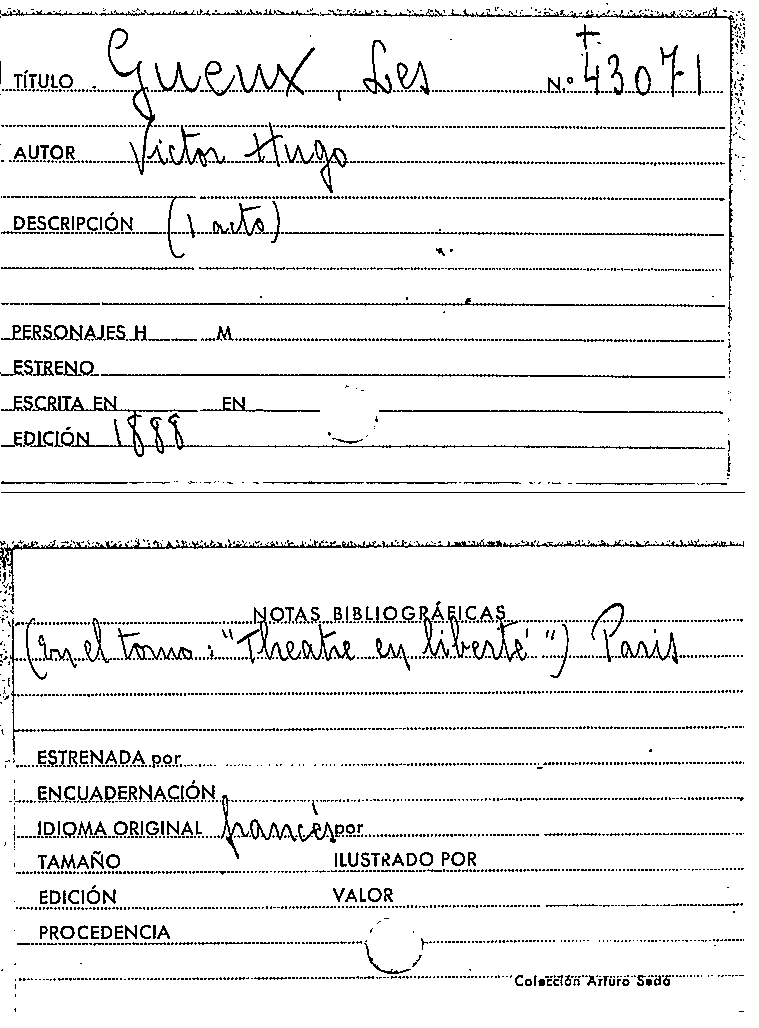 TÍTULO Gueux, Les N.º 43071
AUTOR Victor Hugo
DESCRIPCIÓN (1 acto)
PERSONAJES H M
ESTRENO
ESCRITA EN EN
EDICIÓN 1888
NOTAS BIBLIOGRÁFICAS
(En el tomo: "Theatre en liberté") Paris
ESTRENADA por
ENCUADERNACIÓN
IDIOMA ORIGINAL francés por
TAMAÑO ILUSTRADO POR
EDICIÓN VALOR
PROCEDENCIA
Colección Arturo Sedó